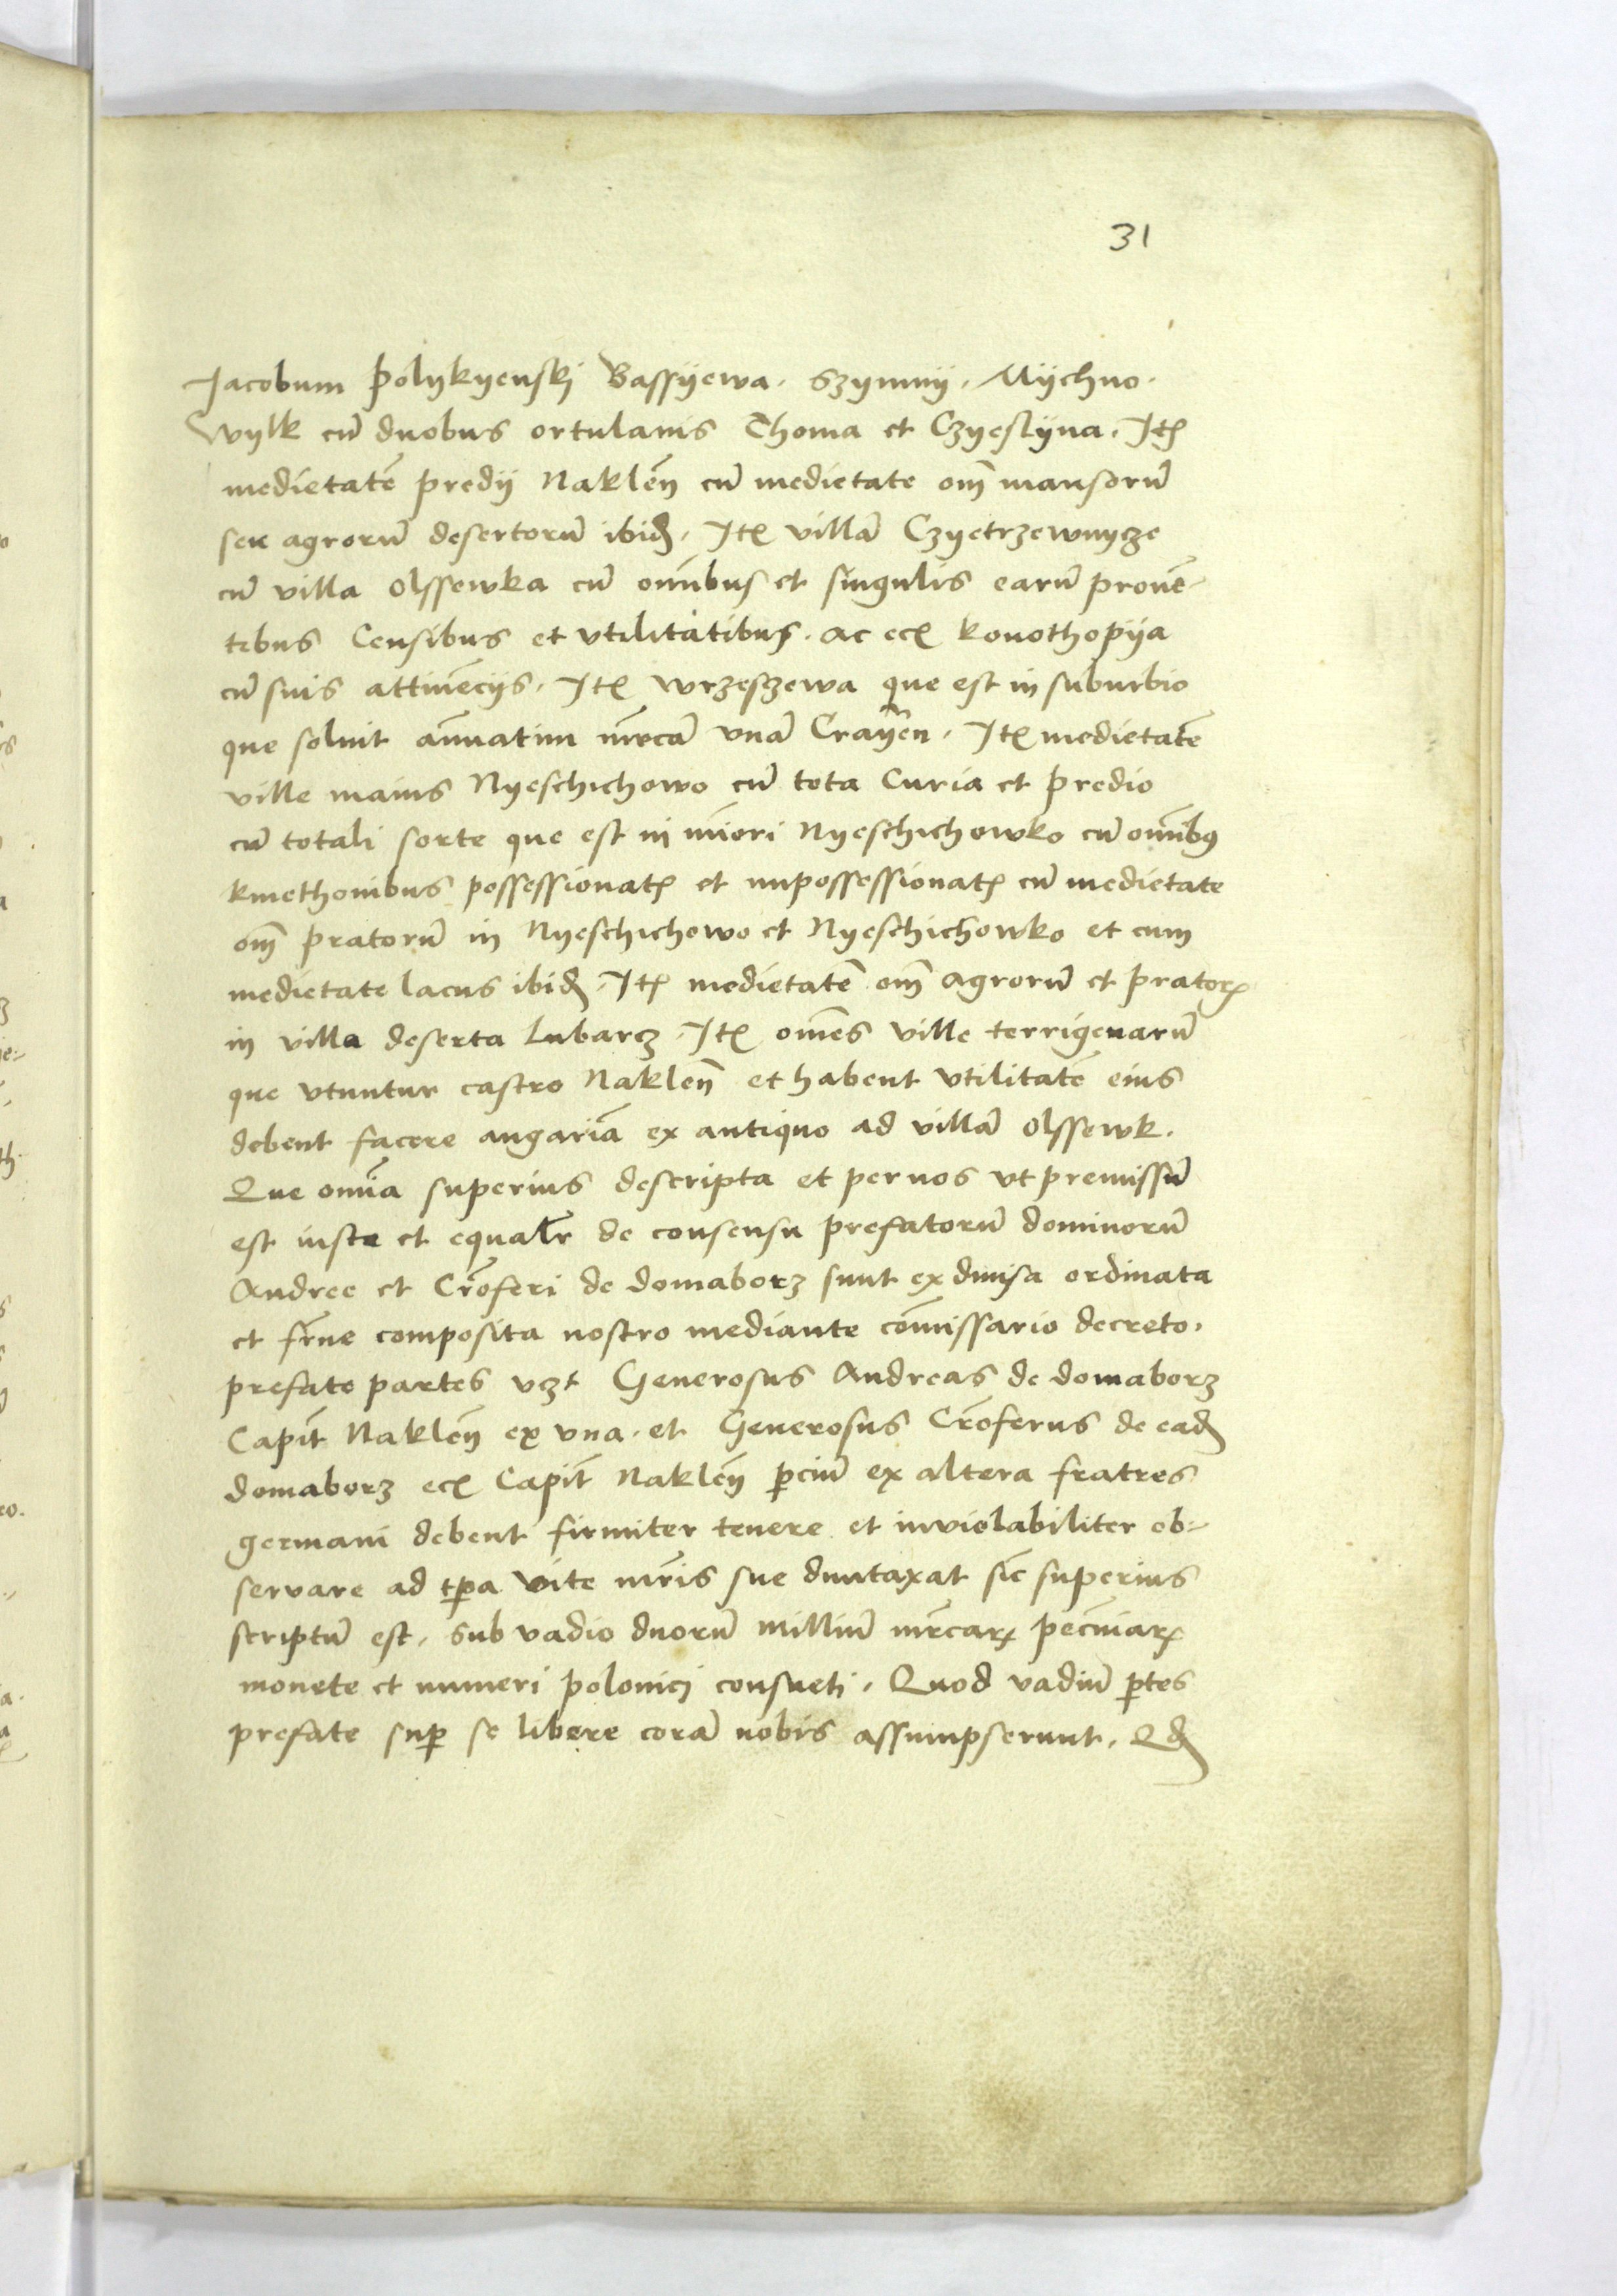 31
Jacobum Polykyenskj Bassÿewa. Szymnij. Mÿchno.
Wylk cu̅ duobus ortulanis Thoma et Czyeslÿna. Ite̅
medietate̅ predij Nakle̅n cu̅ medietate om̅ mansoru̅
seu agroru̅ desertoru̅ ibid̅. Ite̅ villa̅ Czyetrzewnycze
cu̅ villa Olssewka cu̅ om̅ibus et singulis earu̅ proue̅-
tibus Censibus et vtilitatibus. ac ec̅ konothopÿa
cu̅ suis attine̅cijs. Ite̅ wrzesczewa que est in suburbio
que soluit an̅uatim m̅rca̅ vna̅ Craÿe̅n. Ite̅ medietate̅
ville maius Nyeschichowo cu̅ tota Curia et predio
cu̅ totali sorte que est in mi̅ori Nyeschichowko cu̅ om̅ibꝰ
kmethonibus possessionat̅ et impossessionat̅ cu̅ medietate
om̅ pratoru̅ in Nyeschichowo et Nyeschichowko et cum
medietate lacus ibid̅. Ite̅ medietate̅ om̅ agroru̅ et pratorꝝ
in villa deserta Lubarcz. Ite̅ om̅es ville terrigenaru̅
que vtuntur castro Nakle̅n et habent vtilitate̅ eius
debent facere angaria̅ ex antiquo ad villa̅ Olssewk.
Que om̅ia superius descripta et per nos vt premissu̅
est iuste et equalr̅ de consensu prefatoru̅ dominoru̅
Andree et Cr̅oferi de domaborz sunt ex diuisa ordinata
et fr̅ne composita nostro mediante com̅issario decreto.
prefate partes vzt Generosus Andreas de domaborz
Capit̅ Nakle̅n ex vna. et Generosus Cr̅oferus de ead̅
domaborz ec̅ Capit̅ Nakle̅n ꝑciu̅ ex altera fratres
germani debent firmiter tenere et inviolabiliter ob-
servare ad tꝑa vite mr̅is sue duntaxat sic̅ superius
scriptu̅ est. sub vadio duoru̅ milliu̅ m̅rcarꝝ pecu̅iarꝝ
monete et numeri polonicj consueti. Quod vadiu̅ ꝑtes
prefate suꝑ se libere cora̅ nobis assumpserunt. Qd̅